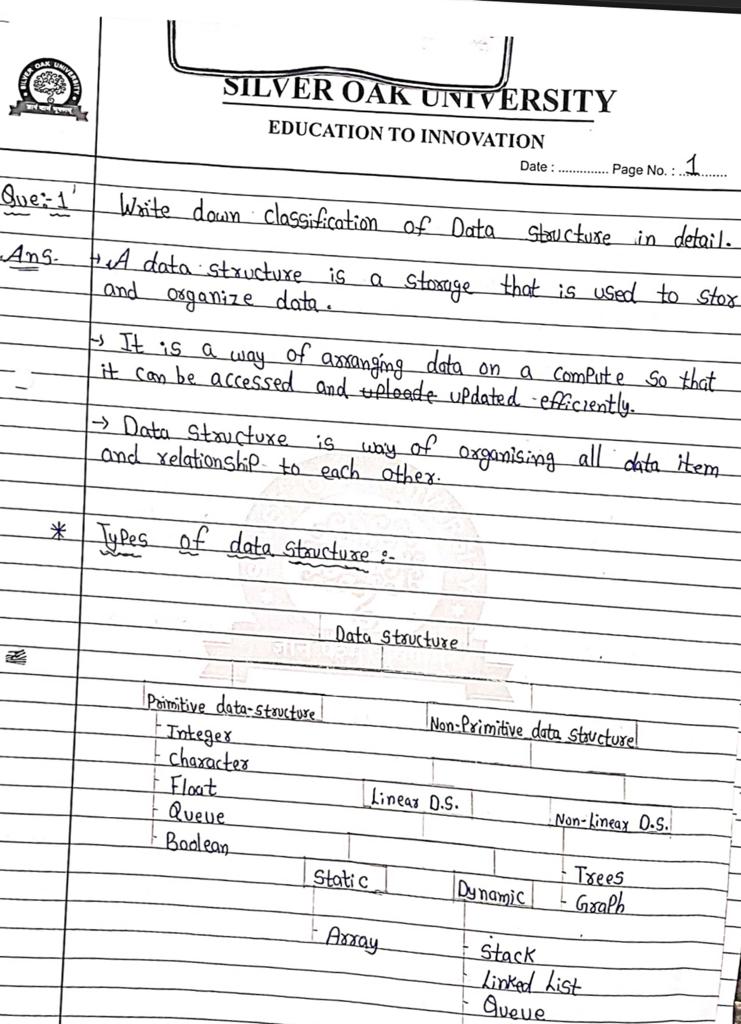 SILVER OAK UNIVERSITY
EDUCATION TO INNOVATION
Date : .............. Page No. : ..1........
Que:-1 Write down classification of Data Structure in detail.
Ans. → A data structure is a storage that is used to stor
and organize data.
→ It is a way of arranging data on a compute so that
it can be accessed and uploade updated efficiently.
→ Data Structure is way of organising all data item
and relationship to each other.
* Types of data structure :-
Data Structure
Primitive data-structure
Non-Primitive data structure
Integer
Character
Float
Linear D.S.
Queue
Non-Linear D.S.
Boolean
Static
Trees
Dynamic
Graph
Array
Stack
Linked List
Queue